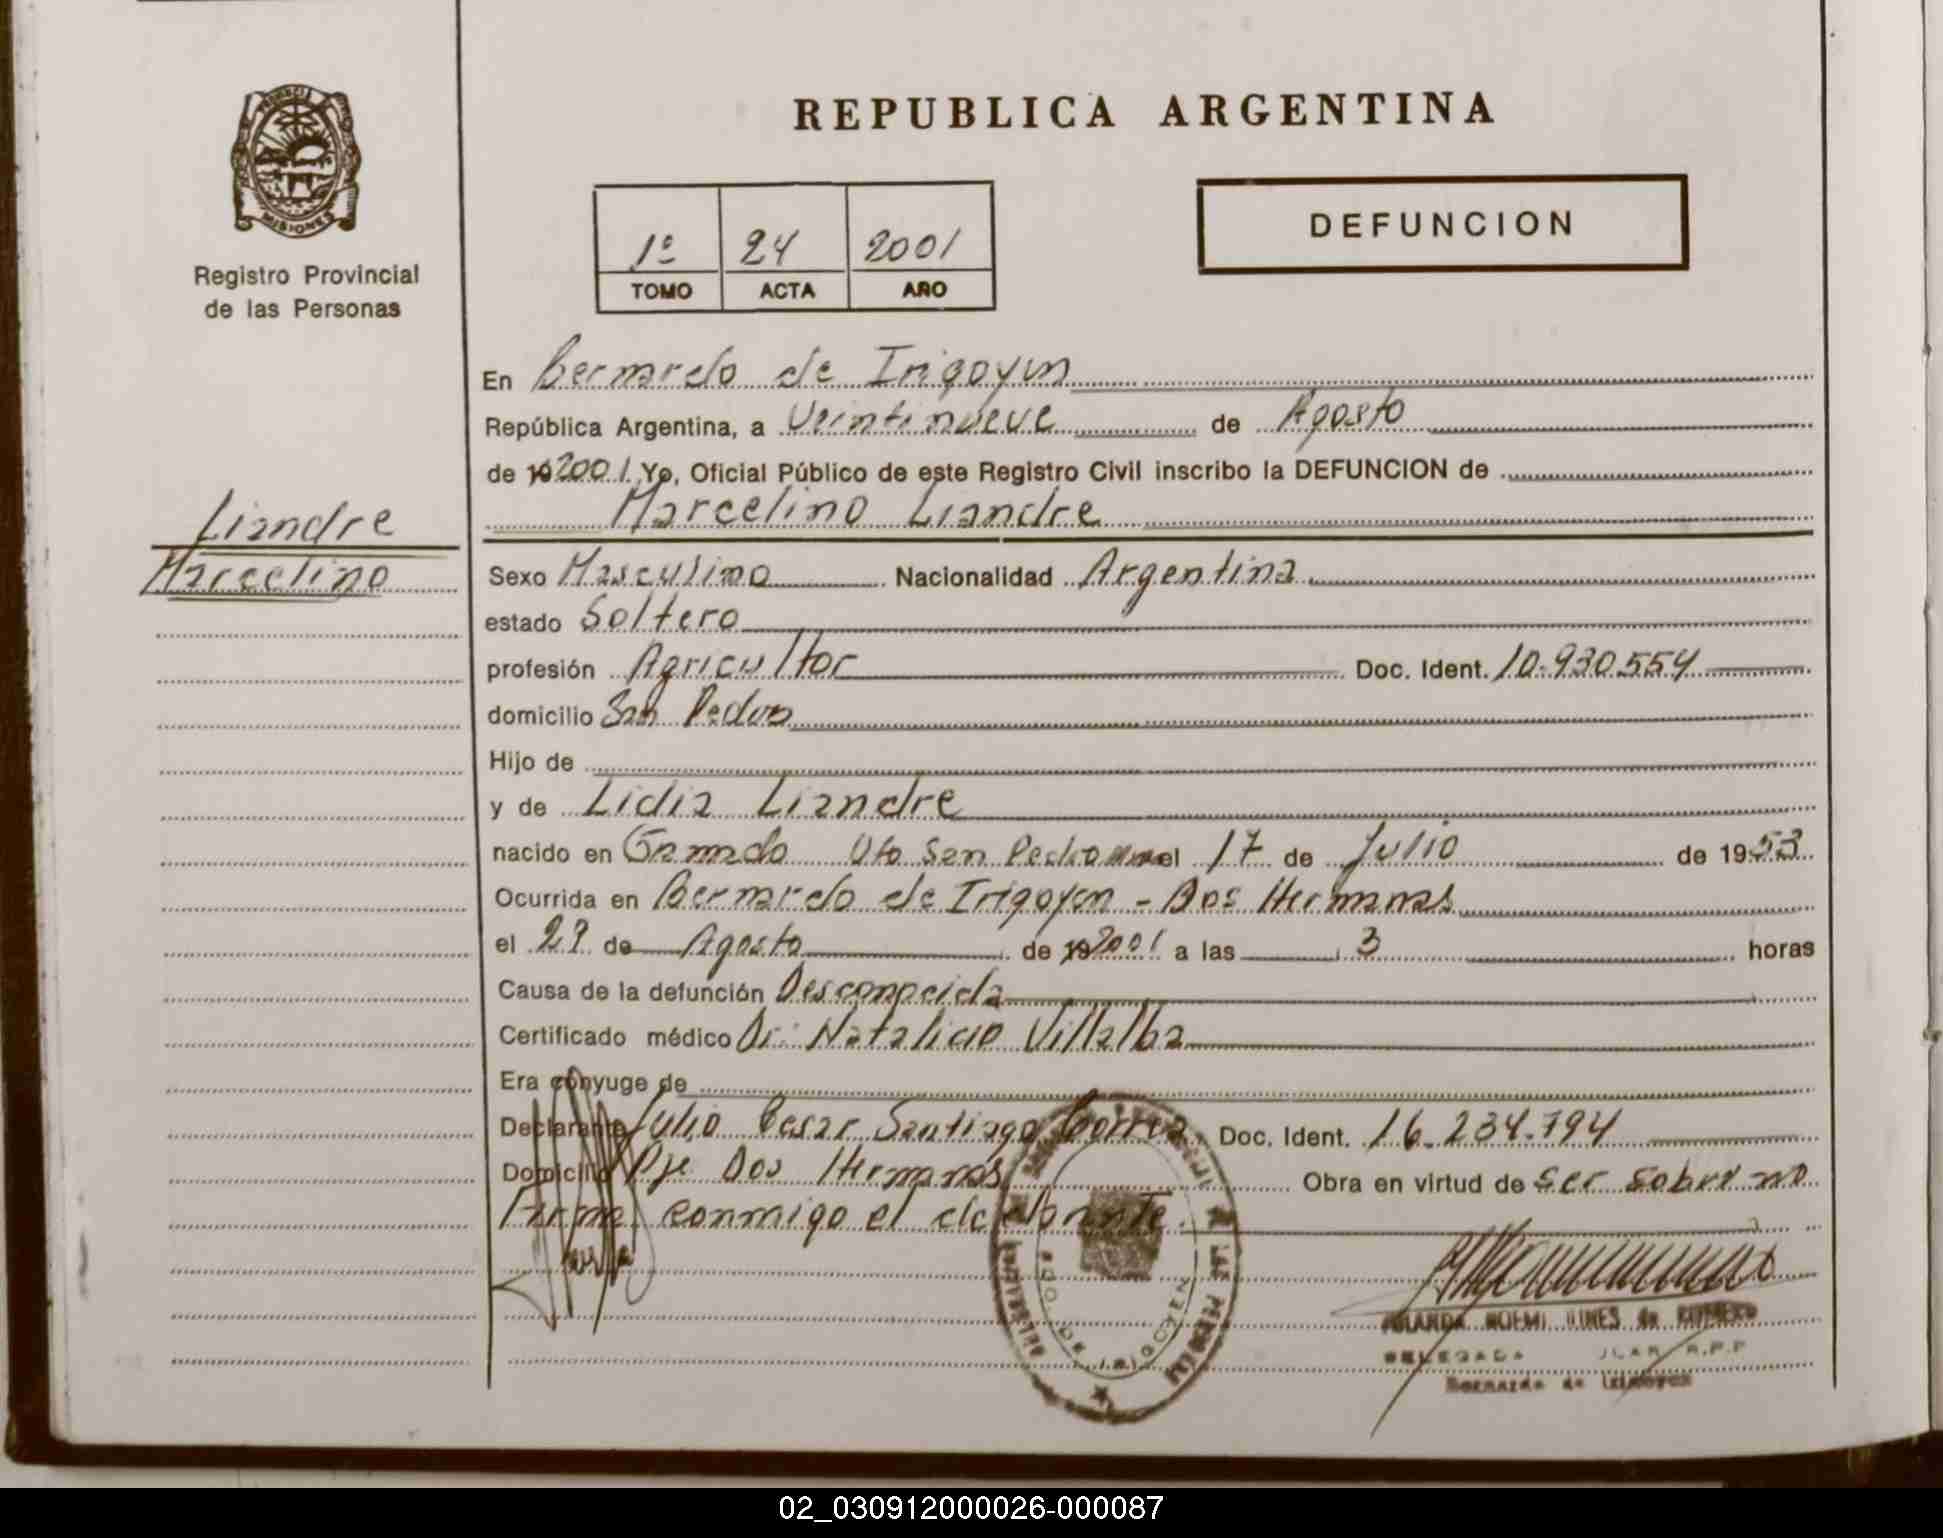 REPUBLICA ARGENTINA
PROVINCIA DE
MISIONES
Registro Provincial
de las Personas
1º 24 2001
TOMO ACTA AÑO
DEFUNCION
En Bernardo de Irigoyen
República Argentina, a Veintinueve de Agosto
de 19 2001 Yo, Oficial Público de este Registro Civil inscribo la DEFUNCION de
Marcelino Liandre
Liandre
Marcelino
Sexo Masculino Nacionalidad Argentina
estado Soltero
profesión Agricultor Doc. Ident. 10.930.554
domicilio San Pedro
Hijo de
y de Lidia Liandre
nacido en Gramado Dto San Pedro el 17 de Julio de 1953
Ocurrida en Bernardo de Irigoyen - Dos Hermanas
el 29 de Agosto de 19 2001 a las 3 horas
Causa de la defunción Desconocida
Certificado médico Dr. Natalicio Villalba
Era cónyuge de
Declarante Julio Cesar Santiago Correa Doc. Ident. 16.234.794
Domicilio Pje Dos Hermanas Obra en virtud de ser sobrino
Firma conmigo el declarante.
BDO. DE IRIGOYEN
NOEMI de ROMERO
DELEGADA R.P.P
Bernardo de Irigoyen
02_030912000026-000087